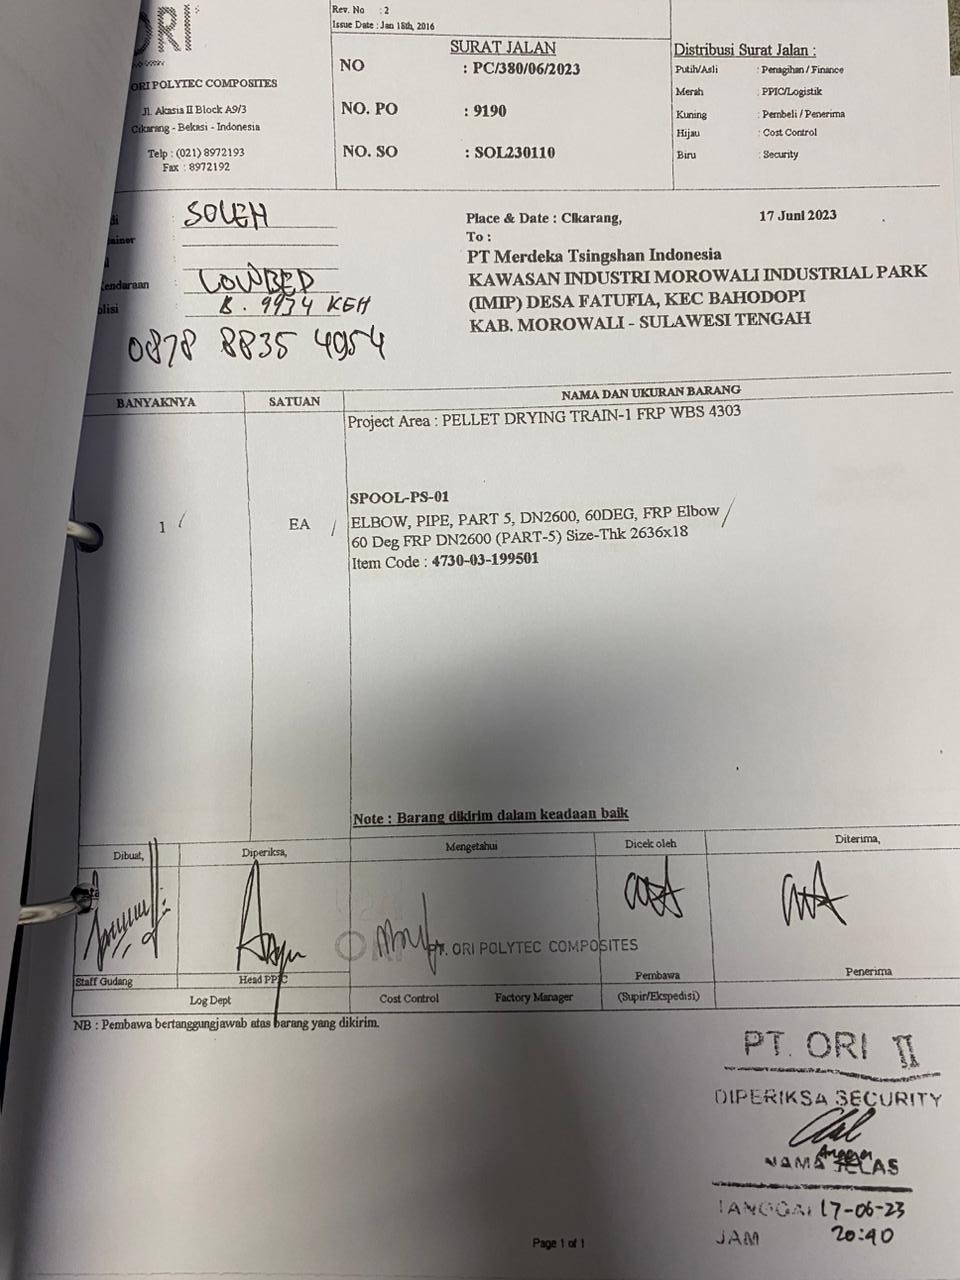 ORI
Rev. No : 2
Issue Date : Jan 18th, 2016
ORI POLYTEC COMPOSITES
Jl. Akasia II Block A9/3
Cikarang - Bekasi - Indonesia
Telp : (021) 8972193
Fax : 8972192
SURAT JALAN
NO : PC/380/06/2023
NO. PO : 9190
NO. SO : SOL230110
Distribusi Surat Jalan :
Putih/Asli : Penagihan / Finance
Merah : PPIC/Logistik
Kuning : Pembeli / Penerima
Hijau : Cost Control
Biru : Security
: SOLEH
: LOWBED
: B. 9974 KEH
0878 8835 4954
Place & Date : Cikarang, 17 Juni 2023
To :
PT Merdeka Tsingshan Indonesia
KAWASAN INDUSTRI MOROWALI INDUSTRIAL PARK
(IMIP) DESA FATUFIA, KEC BAHODOPI
KAB. MOROWALI - SULAWESI TENGAH
BANYAKNYA SATUAN NAMA DAN UKURAN BARANG
Project Area : PELLET DRYING TRAIN-1 FRP WBS 4303
SPOOL-PS-01
1 EA ELBOW, PIPE, PART 5, DN2600, 60DEG, FRP Elbow
60 Deg FRP DN2600 (PART-5) Size-Thk 2636x18
Item Code : 4730-03-199501
Note : Barang dikirim dalam keadaan baik
Dibuat, Diperiksa, Mengetahui Dicek oleh Diterima,
PT. ORI POLYTEC COMPOSITES
Staff Gudang Head PPIC Pembawa Penerima
Log Dept Cost Control Factory Manager (Supir/Ekspedisi)
NB : Pembawa bertanggungjawab atas barang yang dikirim.
PT. ORI II
DIPERIKSA SECURITY
Angga
NAMA JELAS
TANGGAL 17-06-23
JAM 20:40
Page 1 of 1